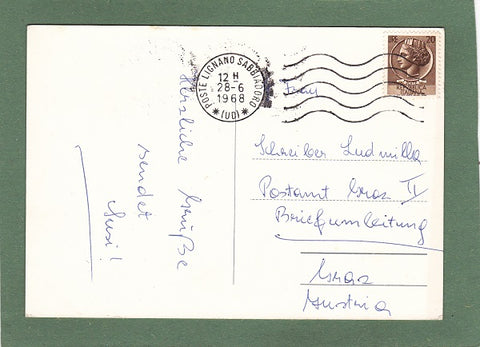 Herzliche Grüße
sendet
Susi!
POSTE LIGNANO SABBIADORO
12 H
28-6
1968
* (UD) *
20
Frau
Schreiber Ludmilla
Postamt Graz II
Briefumleitung
Graz
Austria